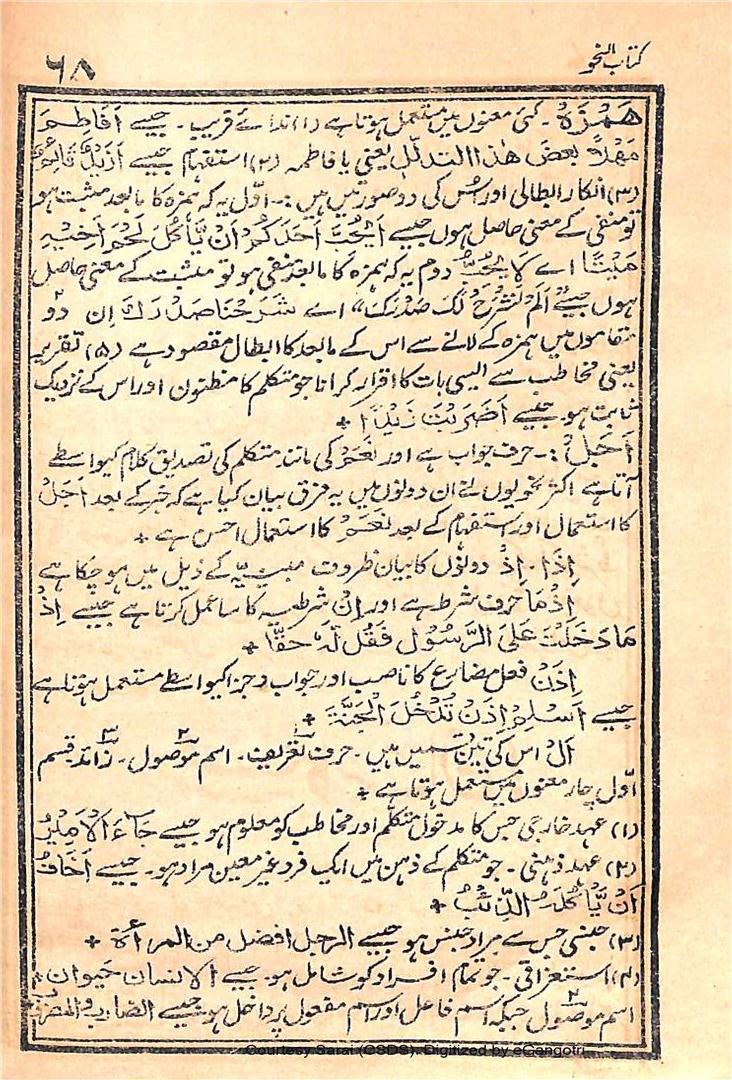 کتاب النحو
۶۸
ھَمْزَہ ۔ کئی معنوں میں مستعمل ہوتا ہے (۱) ندائے قریب ۔ جیسے اَفَاطِمَ
مَھْلًا بَعْضَ ھٰذَا التَّدَلُّلِ یعنی یا فاطمہ (۲) استفہام جیسے اَزَیْدٌ قَائِمٌ
(۳) انکار ابطالی اور اُس کی دو صورتیں ہیں :۔ اوّل یہ کہ ہمزہ کا مابعد مثبت ہو
تو منفی کے معنی حاصل ہوں جیسے اَیُحِبُّ اَحَدُکُمْ اَنْ یَّاْکُلَ لَحْمَ اَخِیْہِ
مَیْتًا اے لَا یُحِبُّ دوم یہ کہ ہمزہ کا مابعد منفی ہو تو مثبت کے معنی حاصل
ہوں جیسے اَلَمْ نَشْرَحْ لَکَ صَدْرَکَ“ اے شَرَحْنَا صَدْرَکَ اِن دو
مقاموں میں ہمزہ کے لانے سے اس کے مابعد کا ابطال مقصود ہے (۵) تقریر
یعنی مخاطب سے ایسی بات کا اقرار کرانا جو متکلم کا مظنون اور اس کے نزدیک
ثابت ہو جیسے اَضَرَبْتَ زَیْدًا +
اَجَلْ :۔ حرف جواب ہے اور نَعَمْ کی مانند متکلم کی تصدیق کلام کیواسطے
آتا ہے اکثر نحویوں نے ان دونوں میں یہ فرق بیان کیا ہے کہ خبر کے بعد اَجَلْ
کا استعمال اور استفہام کے بعد نَعَمْ کا استعمال احسن ہے +
اِذَا ۔ اِذْ دونوں کا بیان ظروف مبنیہ کے ذیل میں ہو چکا ہے
اِذْمَا حرف شرط ہے اور اِنْ شرطیہ کا سا عمل کرتا ہے جیسے اِذْ
مَا دَخَلْتَ عَلَی الرَّسُوْلِ فَقُلْ لَہٗ حَقًّا +
اِذَنْ فعل مضارع کا ناصب اور جواب و جزا کیواسطے مستعمل ہوتا ہے
جیسے اَسْلِمْ اِذَنْ تَدْخُلَ الْجَنَّةَ +
اَلْ اس کی تین قسمیں ہیں ۔ حرف تعریف ۔ ۲ اسم موصول ۔ ۳ زائد قسم
اوّل چار معنوں میں مستعمل ہوتا ہے +
(۱) عہد خارجی جس کا مدخول متکلم اور مخاطب کو معلوم ہو جیسے جَآءَ الْاَمِیْرُ
(۲) عہد ذہنی ۔ جو متکلم کے ذہن میں ایک فرد غیر معین مراد ہو ۔ جیسے اَخَافُ
اَنْ یَّاْکُلَہُ الذِّئْبُ +
(۳) جنسی جس سے مراد جنس ہو جیسے الرجل افضل من المرأة +
(۴) استغراقی ۔ جو تمام افراد کو شامل ہو ۔ جیسے الانسان حیوان +
۲ اسم موصول جبکہ اسم فاعل اور اسم مفعول پر داخل ہو جیسے الضارب و المضروب
Courtesy Sarai (CSDS). Digitized by eGangotri